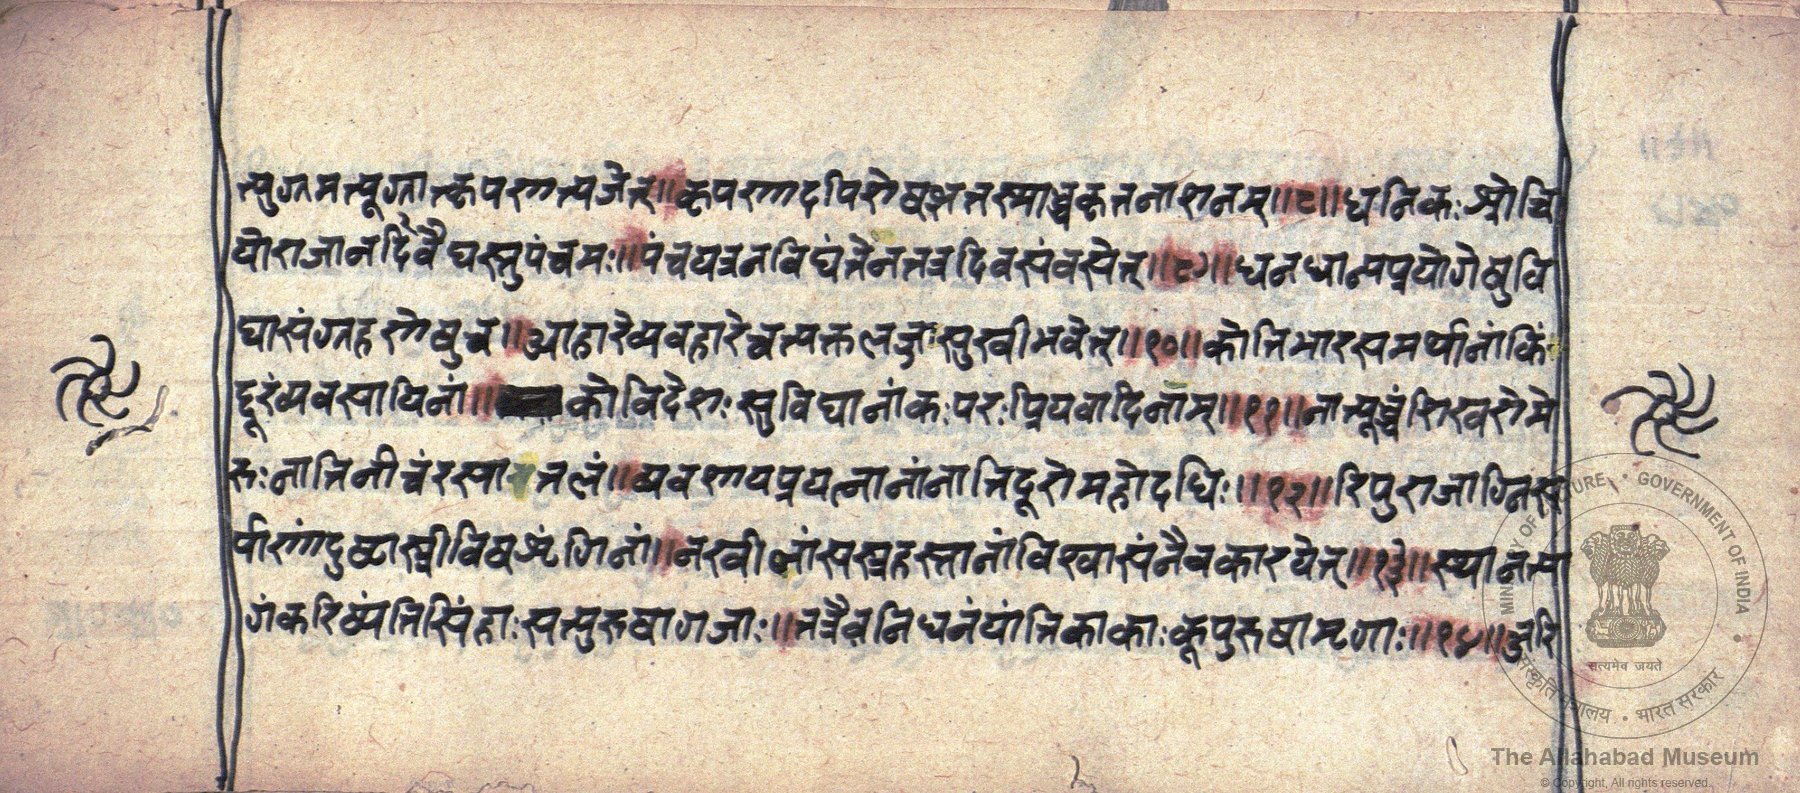 त्युग्रमत्यूग्रात्कृपणात्यजेत्॥कृपणादपिशेषभूतस्माच्चकृतनाशनम्॥८॥धनिकःश्रोत्रि
योराजानदिवैघस्तुपंचमः॥पंचयत्रनविद्यंतेनतत्रदिवसंवसेत्॥८९॥धनधान्यप्रयोगेषुवि
घासंग्रहणेषुच॥आहारेव्यवहारेचत्यक्तलज्जःसुखीभवेत्॥१०॥कोतिभारसमर्थानांकिं
दूरंव्यवसायिनां॥कोविदेशःसुविघानांकःपरःप्रियवादिनाम्॥११॥नात्यूच्चंशिखरोमे
रुःनातिनीचंरसातलं॥व्यवशायप्रयत्नानांनातिदूरोमहोदधिः॥१२॥रिपुराजाग्निस
र्पाणांदुष्टास्त्रीविषशृंगिनां॥नखीनांसस्त्रहस्तानांविश्वासंनैवकारयेत्॥१३॥स्थानत्या
गंकरिष्यंतिसिंहाःसत्पुरुषागजाः॥तत्रैवनिधनंयांतिकाकाःकूपुरुषामृगाः॥१४॥जुरि
MINISTRY OF CULTURE • GOVERNMENT OF INDIA
सत्यमेव जयते
संस्कृति मंत्रालय • भारत सरकार
The Allahabad Museum
© Copyright, All rights reserved.